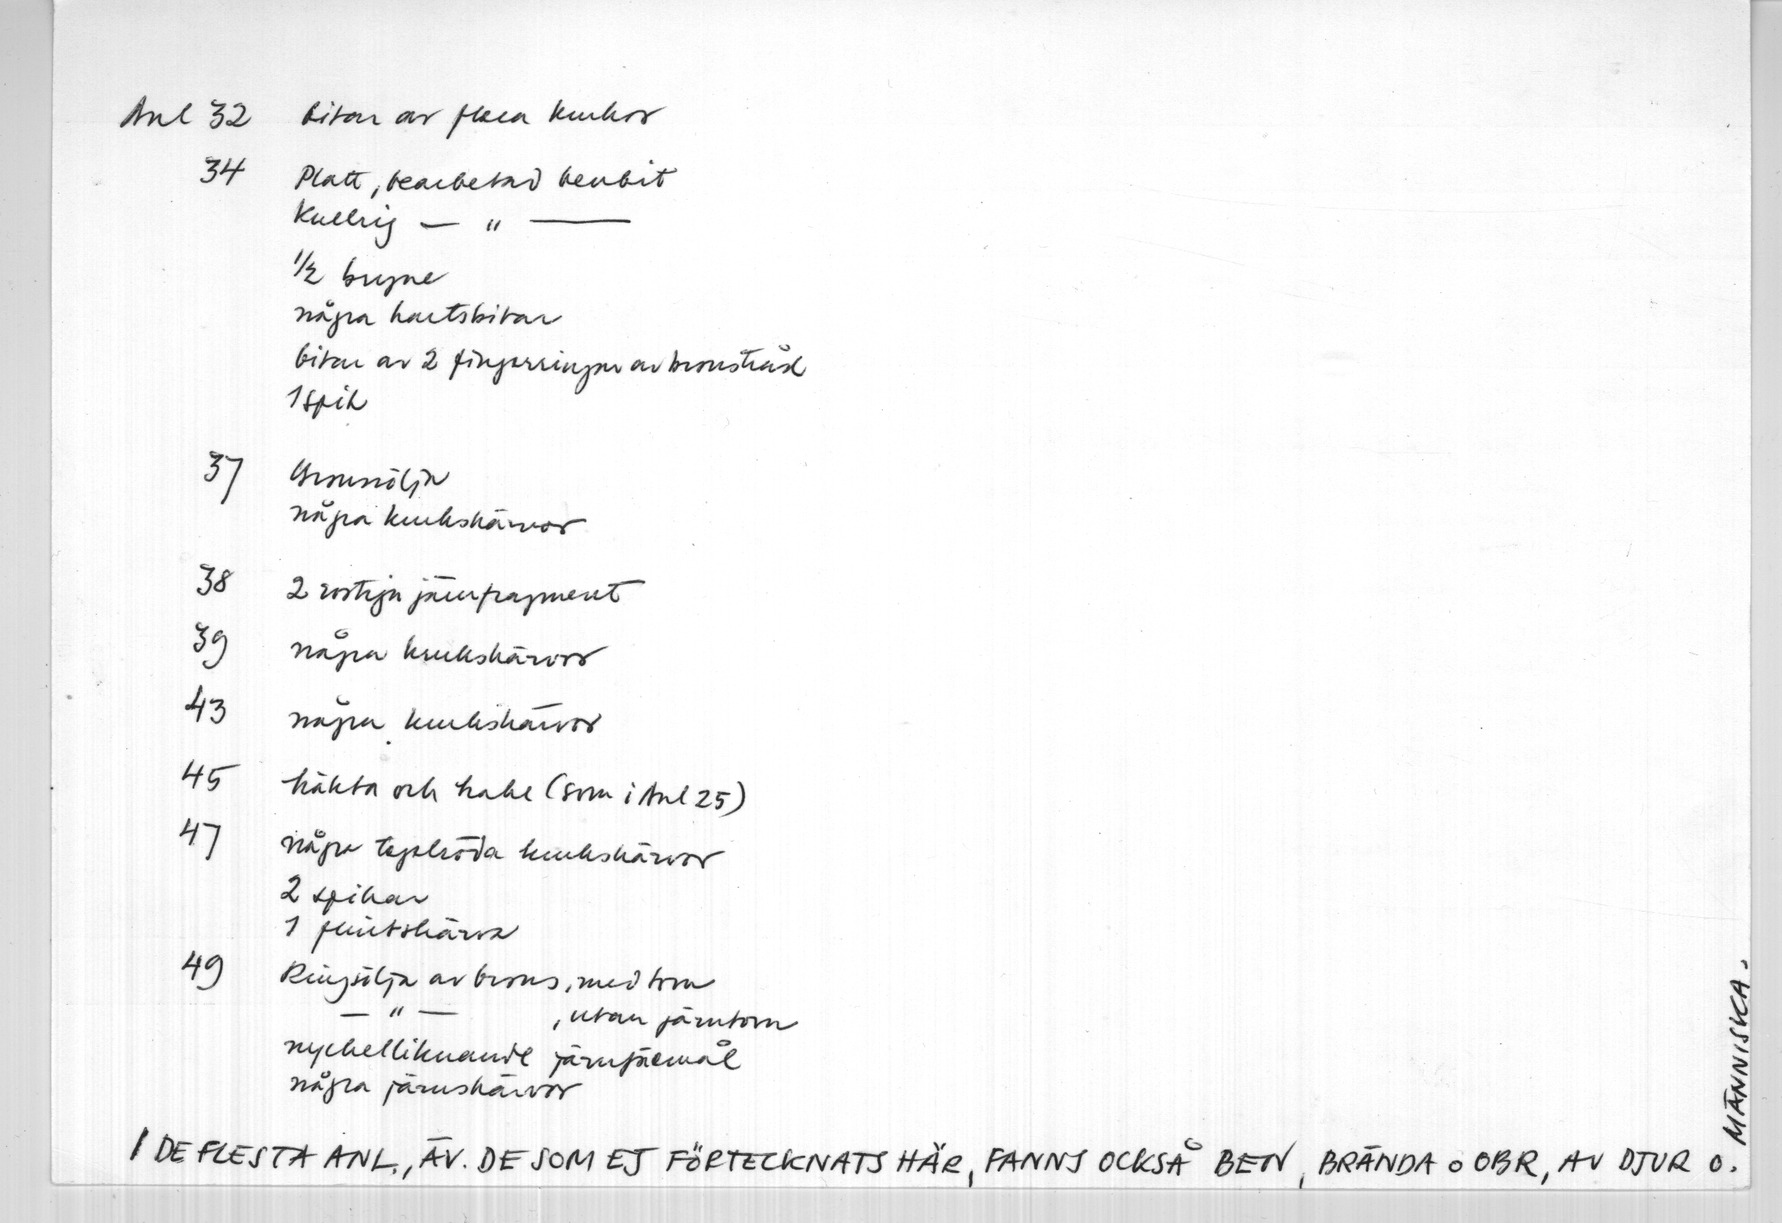 Anl 32 bitar av flera krukor
34 Platt, bearbetad benbit
Kullrig — " —
1/2 bryne
några hartsbitar
bitar av 2 fingerringar av bronstråd
1 spik
37 Bronssölja
några krukskärvor
38 2 rostiga järnfragment
39 några krukskärvor
43 några krukskärvor
45 häkta och hake (som i Anl 25)
47 några tegelröda krukskärvor
2 spikar
1 flintskärva
49 Ringsölja av brons, med torn
— " — , utan järntorn
nyckelliknande järnföremål
några järnskärvor
I DE FLESTA ANL., ÄV. DE SOM EJ FÖRTECKNATS HÄR, FANNS OCKSÅ BEN, BRÄNDA o OBR, AV DJUR o.
MÄNNISKA.